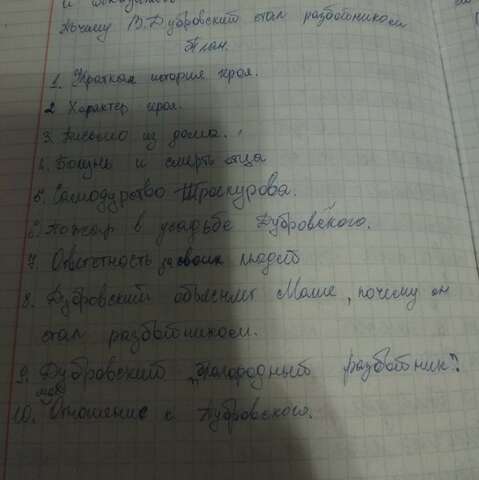 и
Почему В. Дубровский стал разбойником
План.
1. Краткая история героя.
2 Характер героя.
3. Письмо из дома.
4. Болезнь и смерть отца
5. Самодурство Троекурова.
6. Пожар в усадьбе Дубровского.
7. Ответстность за своих людей
8. Дубровский объясняет Маше, почему он
стал разбойником.
9. Дубровский "благородный разбойник".
мое
10. Отношение с Дубровского.